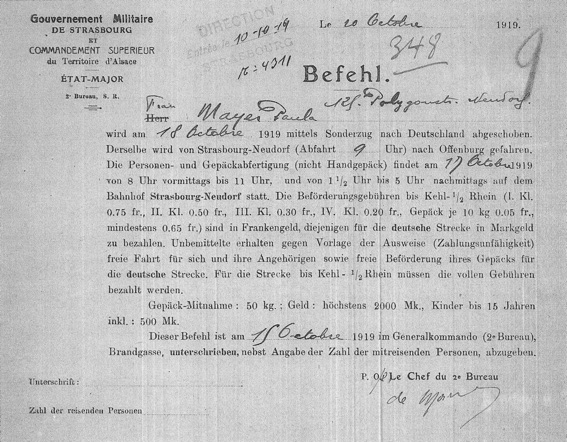 Gouvernement Militaire
DE STRASBOURG
ET
COMMANDEMENT SUPERIEUR
du Territoire d'Alsace
ÉTAT-MAJOR
2e Bureau, S. R.
DIRECTION
STRASBOURG
10-10-19
Le 10 Octobre 1919.
348
9
Befehl.
Frau
Herr Mayer Paula 125, Polygonstr. Neudorf.
wird am 18 Octobre 1919 mittels Sonderzug nach Deutschland abgeschoben.
Derselbe wird von Strasbourg-Neudorf (Abfahrt 9 Uhr) nach Offenburg gefahren.
Die Personen- und Gepäckabfertigung (nicht Handgepäck) findet am 17 Octobre 1919
von 8 Uhr vormittags bis 11 Uhr, und von 1 1/2 Uhr bis 5 Uhr nachmittags auf dem
Bahnhof Strasbourg-Neudorf statt. Die Beförderungsgebühren bis Kehl-1/2 Rhein (I. Kl.
0.75 fr., II. Kl. 0.50 fr., III. Kl. 0.30 fr., IV. Kl. 0.20 fr., Gepäck je 10 kg 0.05 fr.,
mindestens 0.65 fr.) sind in Frankengeld, diejenigen für die deutsche Strecke in Markgeld
zu bezahlen. Unbemittelte erhalten gegen Vorlage der Ausweise (Zahlungsunfähigkeit)
freie Fahrt für sich und ihre Angehörigen sowie freie Beförderung ihres Gepäcks für
die deutsche Strecke. Für die Strecke bis Kehl - 1/2 Rhein müssen die vollen Gebühren
bezahlt werden.
Gepäck-Mitnahme : 50 kg. ; Geld : höchstens 2000 Mk., Kinder bis 15 Jahren
inkl. : 500 Mk.
Dieser Befehl ist am 15 Octobre 1919 im Generalkommando (2e Bureau),
Brandgasse, unterschrieben, nebst Angabe der Zahl der mitreisenden Personen, abzugeben.
P. O/ Le Chef du 2e Bureau
Unterschrift :
Zahl der reisenden Personen